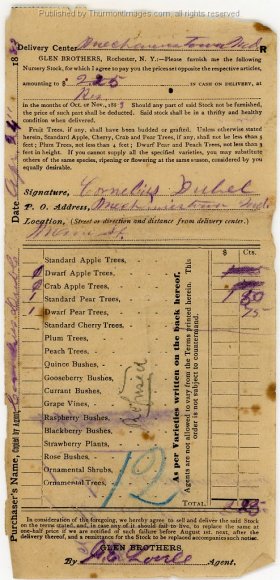 Published by ThurmontImages.com. All rights reserved.
Delivery Center, Mechanicstown Md.
R
GLEN BROTHERS, Rochester, N. Y.—Please furnish me the following
Nursery Stock, for which I agree to pay you the prices set opposite the respective articles,
amounting to $ 2.25 IN CASE ON DELIVERY, at
Res
in the months of Oct. or Nov., 188 Should any part of said Stock not be furnished,
the price of such part shall be deducted. Said stock shall be in a thrifty and healthy
condition when delivered.
Fruit Trees, if any, shall have been budded or grafted. Unless otherwise stated
herein, Standard Apple, Cherry, Crab and Pear Trees, if any, shall not be less than 5
feet; Plum Trees, not less than 4 feet; Dwarf Pear and Peach Trees, not less than 3
feet in height. If you cannot supply all the specified varieties, you may substitute
others of the same species, ripening or flowering at the same season, considered by you
equally desirable.
Date
188
Signature, Cornelius Dubel
P. O. Address, Mechanicstown Md.
Location, (Street or direction and distance from delivery center.)
Main St.
$ Cts.
Standard Apple Trees,
Dwarf Apple Trees,
Crab Apple Trees,
Standard Pear Trees, 1 50
1 Dwarf Pear Trees, 75
Standard Cherry Trees,
Plum Trees,
Peach Trees,
Quince Bushes,
Gooseberry Bushes,
Currant Bushes,
Grape Vines,
Raspberry Bushes,
Blackberry Bushes,
Strawberry Plants,
Rose Bushes,
Ornamental Shrubs,
Ornamental Trees,
Purchaser's Name,
As per Varieties written on the back hereof.
Agents are not allowed to vary from the Terms printed herein. This
order is not subject to countermand.
12
TOTAL, 2 25
In consideration of the foregoing, we hereby agree to sell and deliver the said Stock
on the terms stated, and, in case any of it should fail to live, to replace the same at
one-half price if we are notified of such failure before August 1st. next, after the
delivery thereof, and a remittance for the Stock to be replaced accompanies such notice.
GLEN BROTHERS.
By Agent.